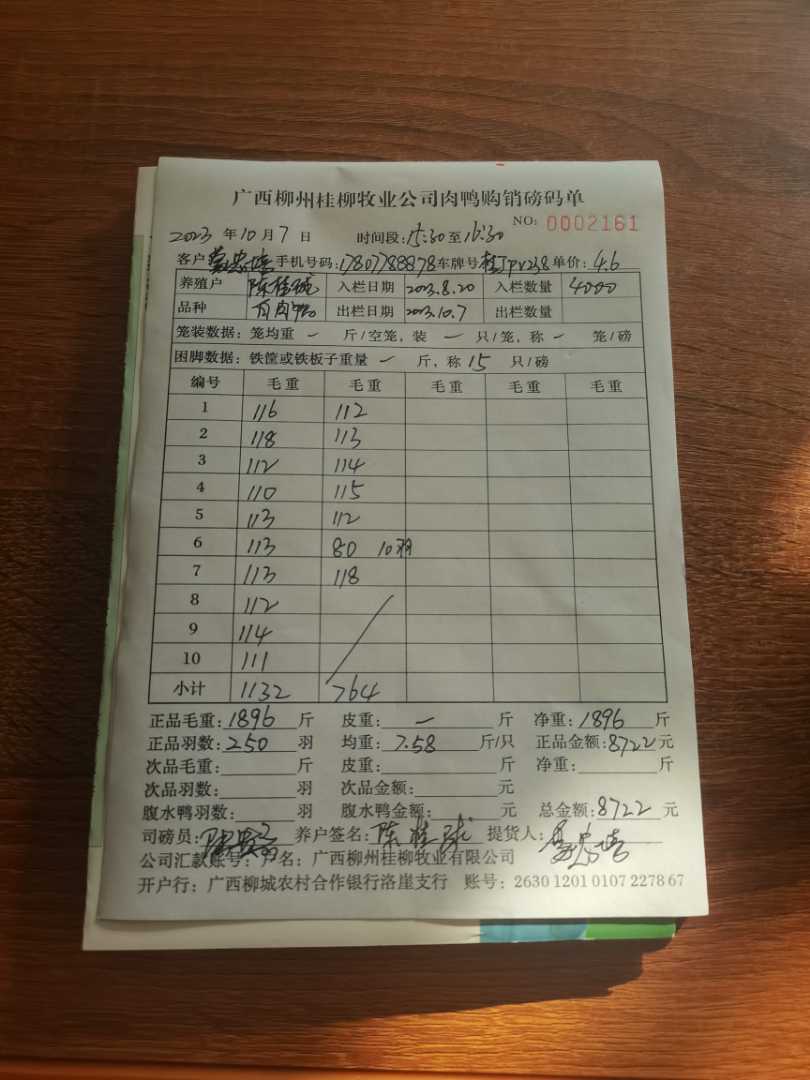 广西柳州桂柳牧业公司肉鸭购销磅码单
NO: 0002161
2023 年 10 月 7 日 时间段: 15:30 至 16:30
客户 手机号码: 17807788878 车牌号 单价: 4.6
养殖户 陈桂琉 入栏日期 2023.8.20 入栏数量 4000
品种 白肉鸭 出栏日期 2023.10.7 出栏数量
笼装数据: 笼均重 — 斤/空笼, 装 — 只/笼, 称 — 笼/磅
困脚数据: 铁筐或铁板子重量 — 斤, 称 15 只/磅
编号 毛重 毛重 毛重 毛重 毛重
1 116 112
2 118 113
3 112 114
4 110 115
5 113 112
6 113 80 10羽
7 113 118
8 112
9 114
10 111
小计 1132 764
正品毛重: 1896 斤 皮重: — 斤 净重: 1896 斤
正品羽数: 250 羽 均重: 7.58 斤/只 正品金额: 8722 元
次品毛重: 斤 皮重: 斤 净重: 斤
次品羽数: 羽 次品金额: 元
腹水鸭羽数: 羽 腹水鸭金额: 元 总金额: 8722 元
司磅员: 养户签名: 陈桂琉 提货人:
公司汇款账号: 户名: 广西柳州桂柳牧业有限公司
开户行: 广西柳城农村合作银行洛崖支行 账号: 2630 1201 0107 2278 67